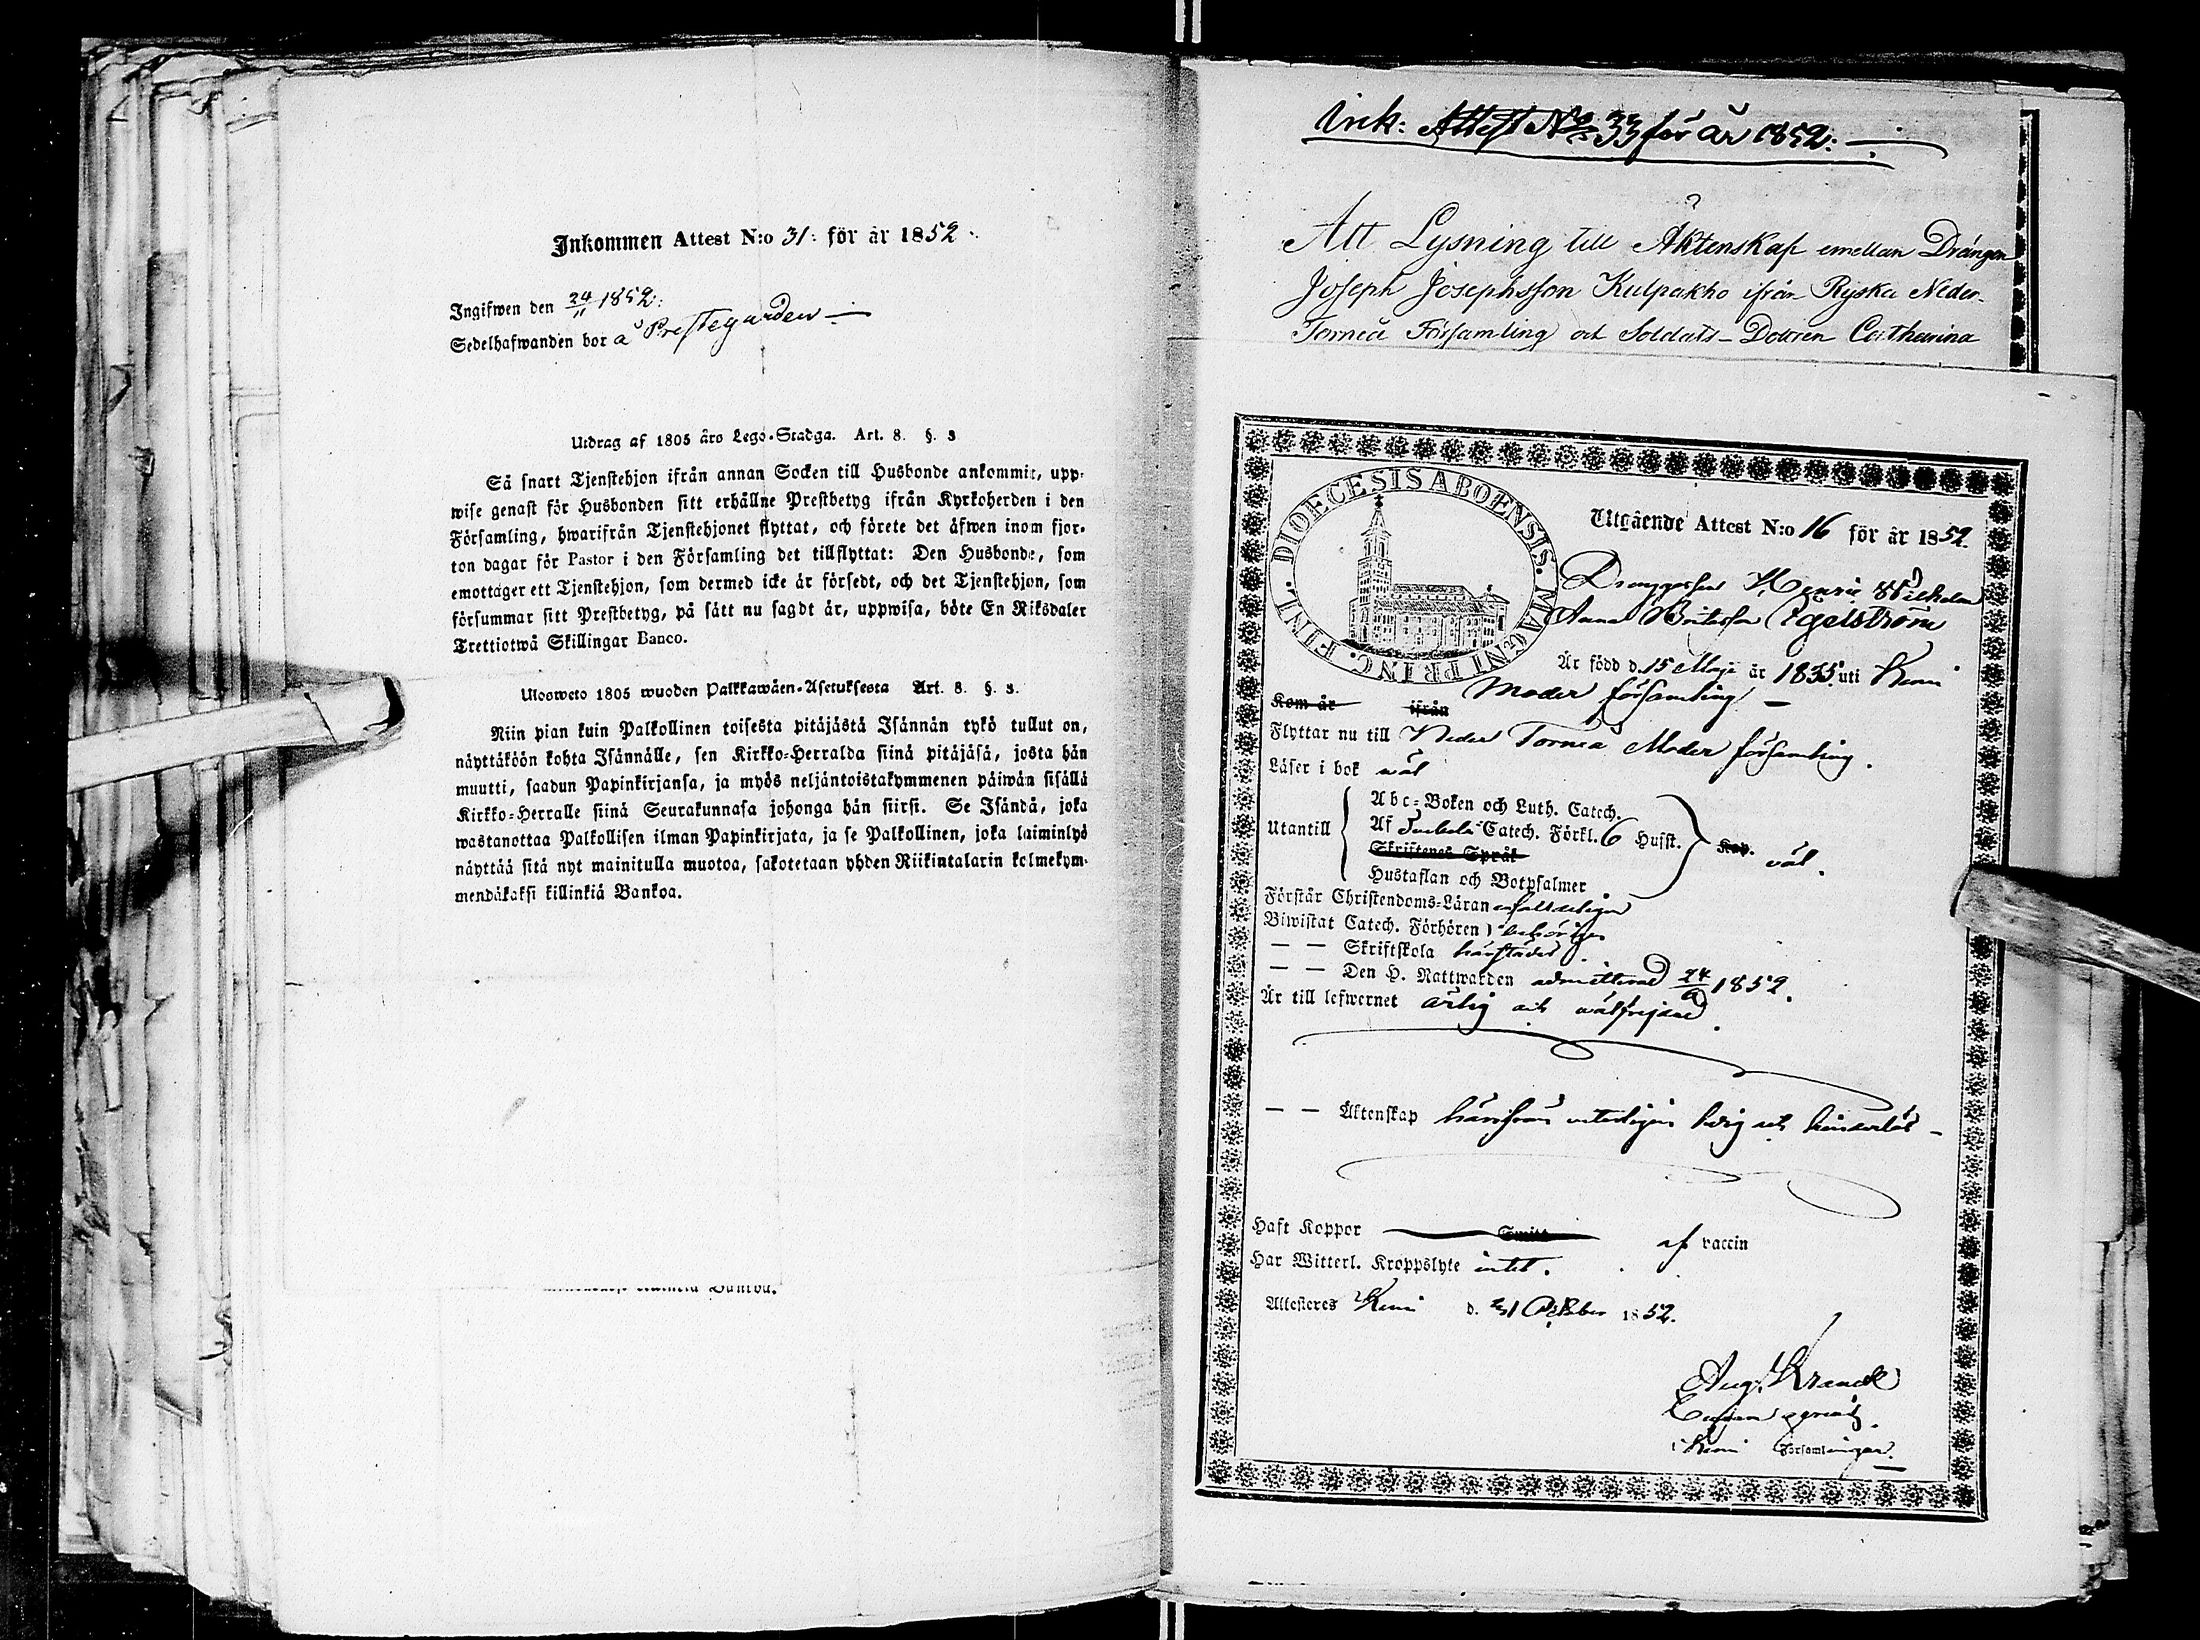 Inkommen Attest N:o 31: för år 1852.
Ingifwen den 24/11 1852:
Sedelhafwanden bor å Prestegården
Utdrag af 1805 års Lego-Stadga. Art. 8. §. 3
Så snart Tjenstehjon ifrån annan Socken till Husbonde ankommit, upp-
wise genast för Husbonden sitt erhållne Prestbetyg ifrån Kyrkoherden i den
Församling, hwarifrån Tjenstehjonet flyttat, och förete det äfwen inom fjor-
ton dagar för Pastor i den Församling det tillflyttat: Den Husbonde, som
emottager ett Tjenstehjon, som dermed icke är försedt, och det Tjenstehjon, som
försummar sitt Prestbetyg, på sätt nu sagdt är, uppwisa, böte En Riksdaler
Trettiotwå Skillingar Banco.
Ulosweto 1805 wuoden Palkkawäen-Asetuksesta Art. 8. §. 3.
Niin pian kuin Palkollinen toisesta pitäjästä Isännän tykö tullut on,
näyttäköön kohta Isännälle, sen Kirkko-Herralda siinä pitäjäsä, josta hän
muutti, saadun Papinkirjansa, ja myös neljäntoistakymmenen päiwän sisällä
Kirkko-Herralle siinä Seurakunnasa johonga hän siirsi. Se Isändä, joka
wastanottaa Palkollisen ilman Papinkirjata, ja se Palkollinen, joka laiminlyö
näyttää sitä nyt mainitulla muotoa, sakotetaan yhden Riikintalarin kolmekym-
mendäkaksi killinkiä Bankoa.
Ink: Attest No 33 för år 1852:
Att Lysning till Äktenskap emellan Drängen
Joseph Josephsson Kulpakko ifrån Ryska Neder-
Torneå Församling och Soldats-Dottren Catharina
DIOECESIS ABOENSIS. MAGNI PRINC. FINL.
Utgående Attest N:o 16 för år 1852.
Henric Wilhelm
Anna Egelström
Är född d. 15 Maji år 1835 uti Kemi
Moder församling
Kom år ifrån
Flyttar nu till Neder Torneå Moder församling.
Läser i bok wäl
Utantill
Abc-Boken och Luth. Catech.
Af Catech. Förkl. 6 Hufst.
Skriftenes Språk
Hustaflan och Botpsalmer
Kop. väl.
Förstår Christendoms-Läran
Biwistat Catech. Förhören
— — Skriftskola härstädes.
— — Den H. Nattwarden admitterad 1852.
Är till lefwernet ärlig och välfrejdad
— — Äktenskap härifrån ledig och hinderlös
Haft Koppor Smitt af vaccin
Har Witterl. Kroppslyte intet.
Attesteres Kemi d. 31 October 1852.
Aug.
i Kemi Församlingar.